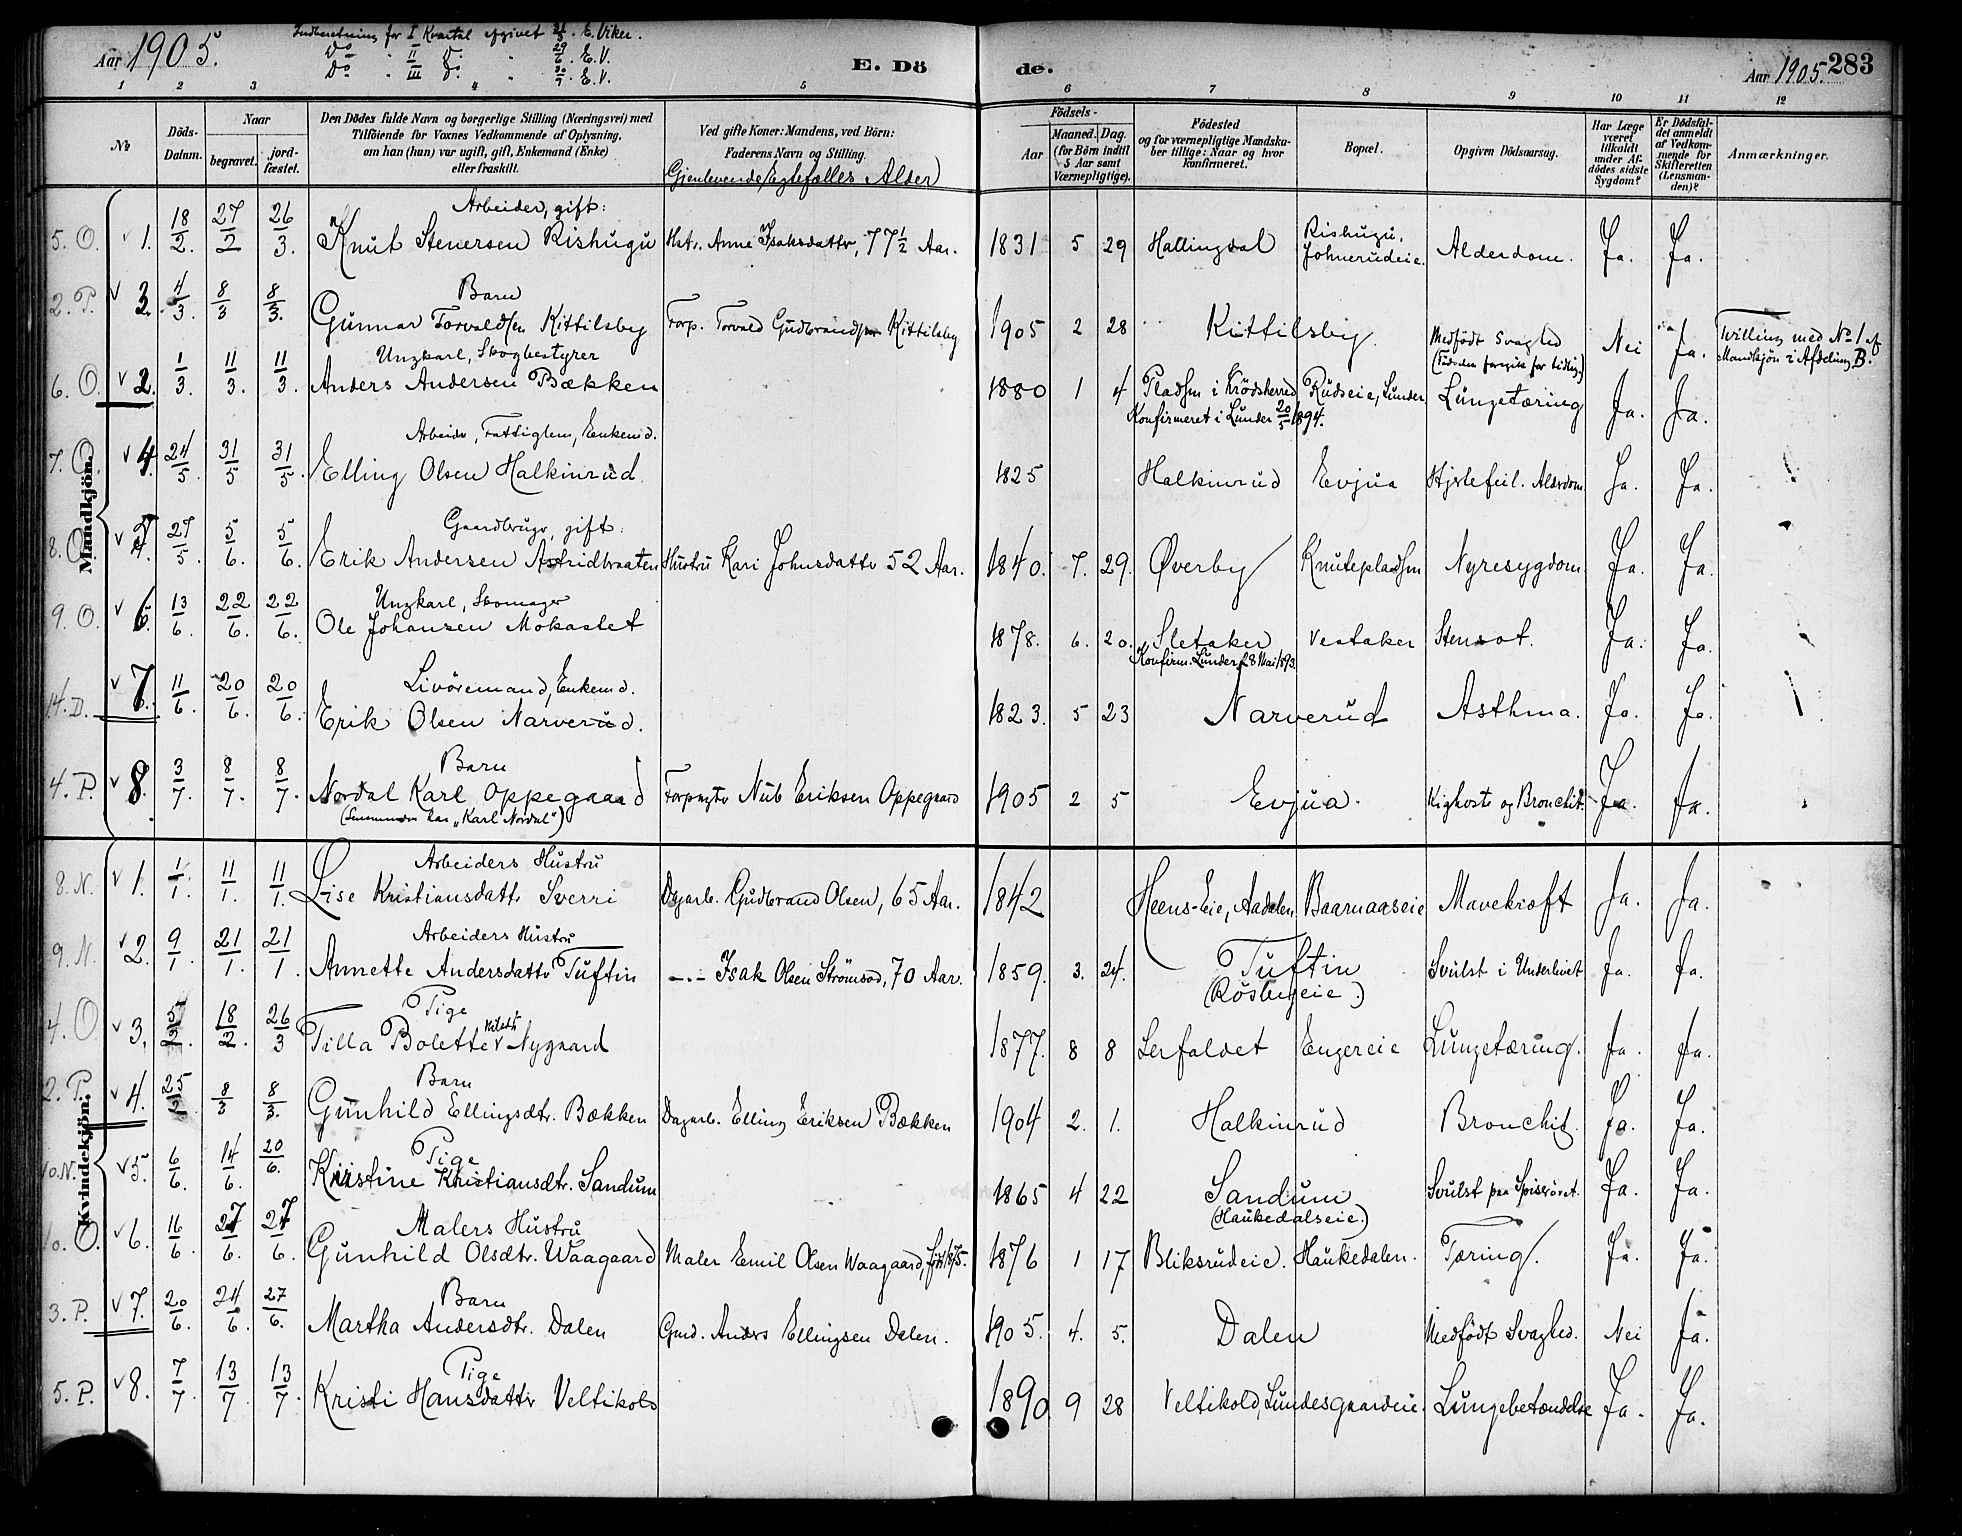 Aar 1905.
Indberetning for I Kvartal afgivet E. Viker.
Do II Do 29/6. E. V.
Do III Do. E. V.
E. Döde.
Aar 1905. 283
1 2 3 4 5 6 7 8 9 10 11 12
No
Döds-Datum.
Naar begravet. jordfæstet.
Den Dödes fulde Navn og borgerlige Stilling (Næringsvei) med Tilföiende for Voxnes Vedkommende af Oplysning, om han (hun) var ugift, gift, Enkemand (Enke) eller fraskilt.
Ved gifte Koner: Mandens, ved Börn: Faderens Navn og Stilling.
Gjenlevende Egtefælles Alder
Födsels-
Aar
Maaned. Dag.
(for Börn indtil 5 Aar samt Værnepligtige).
Födested og for værnepligtige Mandskaber tillige: Naar og hvor konfirmeret.
Bopæl.
Opgiven Dödsaarsag.
Har Læge været tilkaldt under Afdödes sidste Sygdom?
Er Dödsfaldet anmeldt af Vedkommende for Skifteretten (Lensmanden)?
Anmærkninger.
Mandkjön.
5. O. v 1. 18/2. 27/2 26/3. Arbeider, gift:
Knut Stenersen Rishugu Hstr. Anne Isaksdattr, 77 1/2 Aar. 1831 5 29 Hallingdal Rishugu, Johnerudeie. Alderdom. Ja. Ja.
2. P. v 3. 4/3. 8/3 8/3. Barn
Gunnar Torvaldsen Kittilsby Forp. Torvald Gudbrandsen Kittilsby 1905 2 28 Kittilsby. Medfödt Svaghed Nei Ja. Tvilling med No 1 af Mandkjön i Afdeling B.
(Födselen foregik for tidlig.)
6. O. v 2. 1/3. 11/3. 11/3. Ungkarl, Skogbestyrer
Anders Andersen Bækken 1880 1 4 Pladsen i Krödsherred Rudseie, Lunder Lungetæring Ja. Ja.
Konfirmeret i Lunder 20/5 1894.
7. O. v 4. 24/5. 31/5 31/5. Arbeidr, Fattiglem, Enkemd.
Elling Olsen Halkinrud 1825 Halkinrud Evjua Hjertefeil. Alderdom Ja. Ja.
8. O. v 5. 27/5. 5/6. 5/6. Gaardbrugr, gift:
Erik Andersen Astridbraaten Hustru Kari Johnsdattr 52 Aar. 1840. 7. 29. Øverby Knutepladsen Nyresygdom. Ja. Ja.
9. O. v 6. 13/6. 22/6. 22/6. Ungkarl, Skomager
Ole Johansen Mokastet 1878. 6. 20. Sletaker Vestaker Stensot. Ja. Ja.
Konfirm. Lunder 28 Mai 1893.
14. D. v 7. 11/6. 20/6. 20/6. Livöremand, Enkemd.
Erik Olsen Narverud. 1823. 5 23 Narverud Asthma. Ja. Ja.
4. P. v 8. 3/7. 8/7. 8/7. Barn
Nordal Karl Oppegaard Forpagtr Nub Eriksen Oppegaard 1905 2 5 Evjua. Kighoste og Bronchit. Ja. Ja.
Kvindekjön.
8. N. v 1. 1/1. 11/1. 11/1. Arbeiders Hustru
Lise Kristiansdattr Sverri Dagarb. Gudbrand Olsen, 65 Aar. 1842 Heens-Eie, Aadalen Baarnaaseie Mavekræft Ja. Ja.
9. N. v 2. 9/1. 21/1. 21/1. Arbeiders Hustru
Annette Andersdattr Tuftin -.- Isak Olsen Strömsod, 70 Aar. 1859. 3. 24. Tuftin Svulst i Underlivet Ja. Ja.
(Rösbergeie.)
4. O v 3. 5/2. 18/2. 26/3 Tige
Tilla Bolette Nygaard 1877. 8 8 Lerfaldet Engereie Lungetæring. Ja. Ja.
2. P. v 4. 25/2 8/3 8/3. Barn
Gunhild Ellingsdtr. Bækken Dagarb. Elling Eriksen Bækken 1904 2. 1. Halkinrud Bronchit. Ja. Ja.
10. N. v 5. 6/6. 14/6. 20/6. Pige
Kristine Kristiansdtr. Sandum 1865 4 22 Sandum Svulst paa Spiserøret. Ja. Ja.
(Haukedalseie.)
10. O. v 6. 16/6. 27/6. 27/6. Malers Hustru
Gunhild Olsdtr. Waagaard Maler Emil Olsen Waagaard, föd 1875. 1876 1 17 Bliksrudeie. Haukedalen. Tæring. Ja. Ja.
3. P. v 7. 20/6. 24/6. 27/6. Barn
Martha Andersdtr. Dalen Gmd. Anders Ellingsen Dalen. 1905. 4. 5. Dalen Medfödt Svaghed. Nei Ja.
5. P. v 8. 7/7. 13/7 13/7. Pige
Kristi Hansdattr Veltikold 1890 9 28 Veltikold, Lundesgaardeie. Lungebetændelse Ja. Ja.